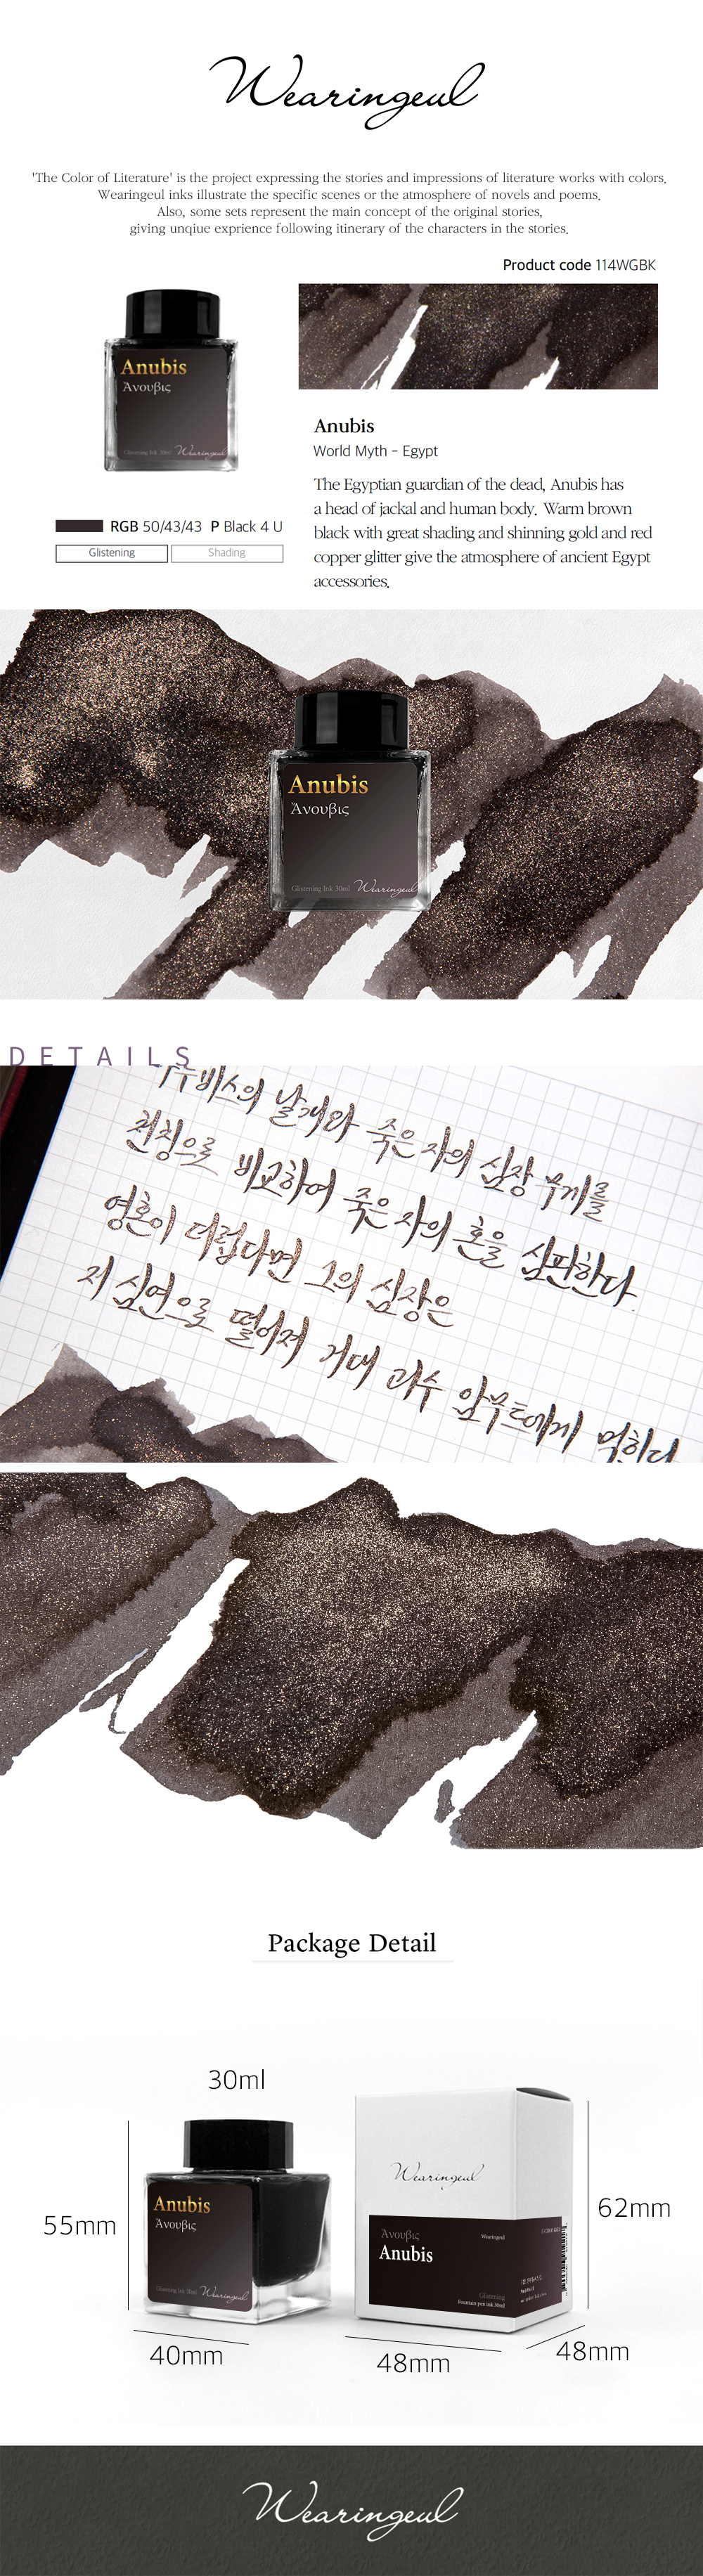 Wearingeul
'The Color of Literature' is the project expressing the stories and impressions of literature works with colors.
Wearingeul inks illustrate the specific scenes or the atmosphere of novels and poems.
Also, some sets represent the main concept of the original stories,
giving unqiue exprience following itinerary of the characters in the stories.
Product code 114WGBK
Anubis
Ἄνουβις
Glistening Ink 30ml Wearingeul
Anubis
World Myth - Egypt
The Egyptian guardian of the dead, Anubis has
a head of jackal and human body. Warm brown
black with great shading and shinning gold and red
copper glitter give the atmosphere of ancient Egypt
accessories.
RGB 50/43/43 P Black 4 U
Glistening Shading
Anubis
Ἄνουβις
Glistening Ink 30ml Wearingeul
DETAILS
날개와 죽은 자의 심장 무게를
천칭으로 비교하여 죽은 자의 혼을 심판한다
영혼이 더럽다면 그의 심장은
저 심연으로 떨어져 거대 괴수 암무트에게 먹힌다
Package Detail
30ml
55mm
Anubis
Ἄνουβις
Glistening Ink 30ml Wearingeul
40mm
Wearingeul
Ἄνουβις
Wearingeul
Anubis
Glistening
Fountain pen ink 30ml
62mm
48mm
48mm
Wearingeul